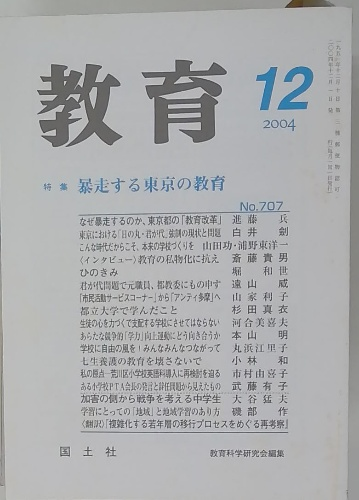 教育
12
2004
特集 暴走する東京の教育
No.707
なぜ暴走するのか、東京都の「教育改革」 進藤 兵
東京における「日の丸・君が代」強制の現状と問題 白井 剣
こんな時代だからこそ、本来の学校づくりを 山田功・浦野東洋一
〈インタビュー〉教育の私物化に抗え 斎藤貴男
ひのきみ 堀 和世
君が代問題で元職員、都教委にもの申す 遠山 威
「市民活動サービスコーナー」から「アンティ多摩」へ 山家利子
都立大学で学んだこと 杉田真衣
生徒の心を力づくで支配する学校にさせてはならない 河合美喜夫
あらたな競争的「学力」向上運動にどう向き合うか 本山 明
学校に自由の風を!みんなみんなつながって 丸浜江里子
七生養護の教育を壊さないで 小林 和
私の原点―荒川区小学校英語科導入に再検討を迫る 市村由喜子
ある小学校PTA会長の発言と辞任問題から見えたもの 武藤有子
加害の側から戦争を考える中学生 大谷猛夫
学習にとっての「地域」と地域学習のあり方 磯部 作
〈翻訳〉「複雑化する若年層の移行プロセスをめぐる再考察」
国土社
教育科学研究会編集